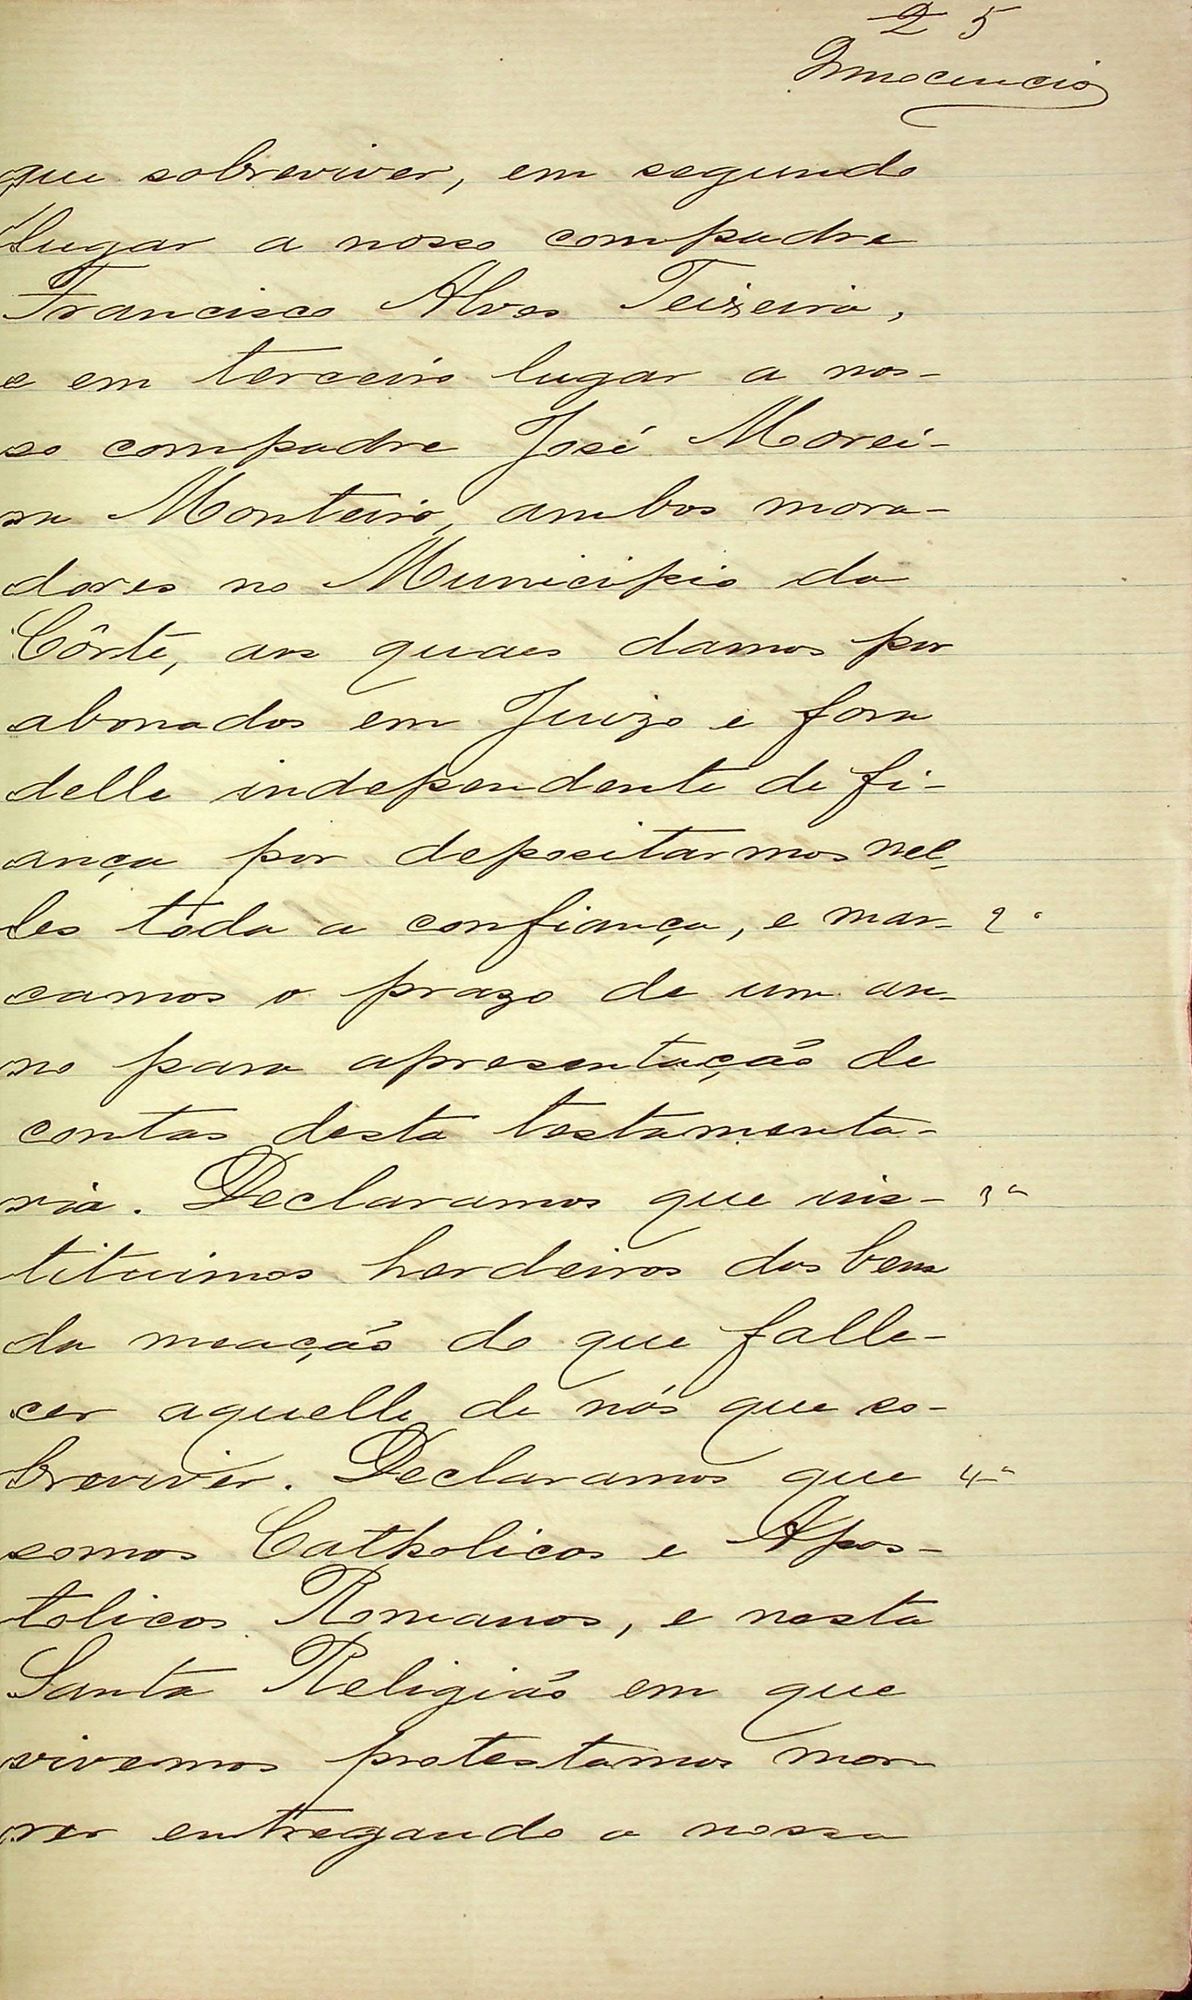 25
Innocencio
que sobreviver, em segundo
lugar a nosso compadre
Francisco Alves Teixeira,
e em terceiro lugar a nos-
so compadre José Morei-
ra Monteiro, ambos mora-
dores no Municipio da
Côrte, aos quaes damos por
abonados em Juizo e fora
delle independente de fi-
ança por depositarmos nel-
les toda a confiança, e mar- 2ª
camos o prazo de um an-
no para apresentação de
contas desta testamenta-
ria. Declaramos que ins- 3ª
tituimos herdeiros dos bens
da meação do que falle-
cer aquelle de nós que so-
breviver. Declaramos que 4ª
somos Catholicos e Apos-
tolicos Romanos, e nesta
Santa Religião em que
vivemos protestamos mor-
rer entregando a nossa